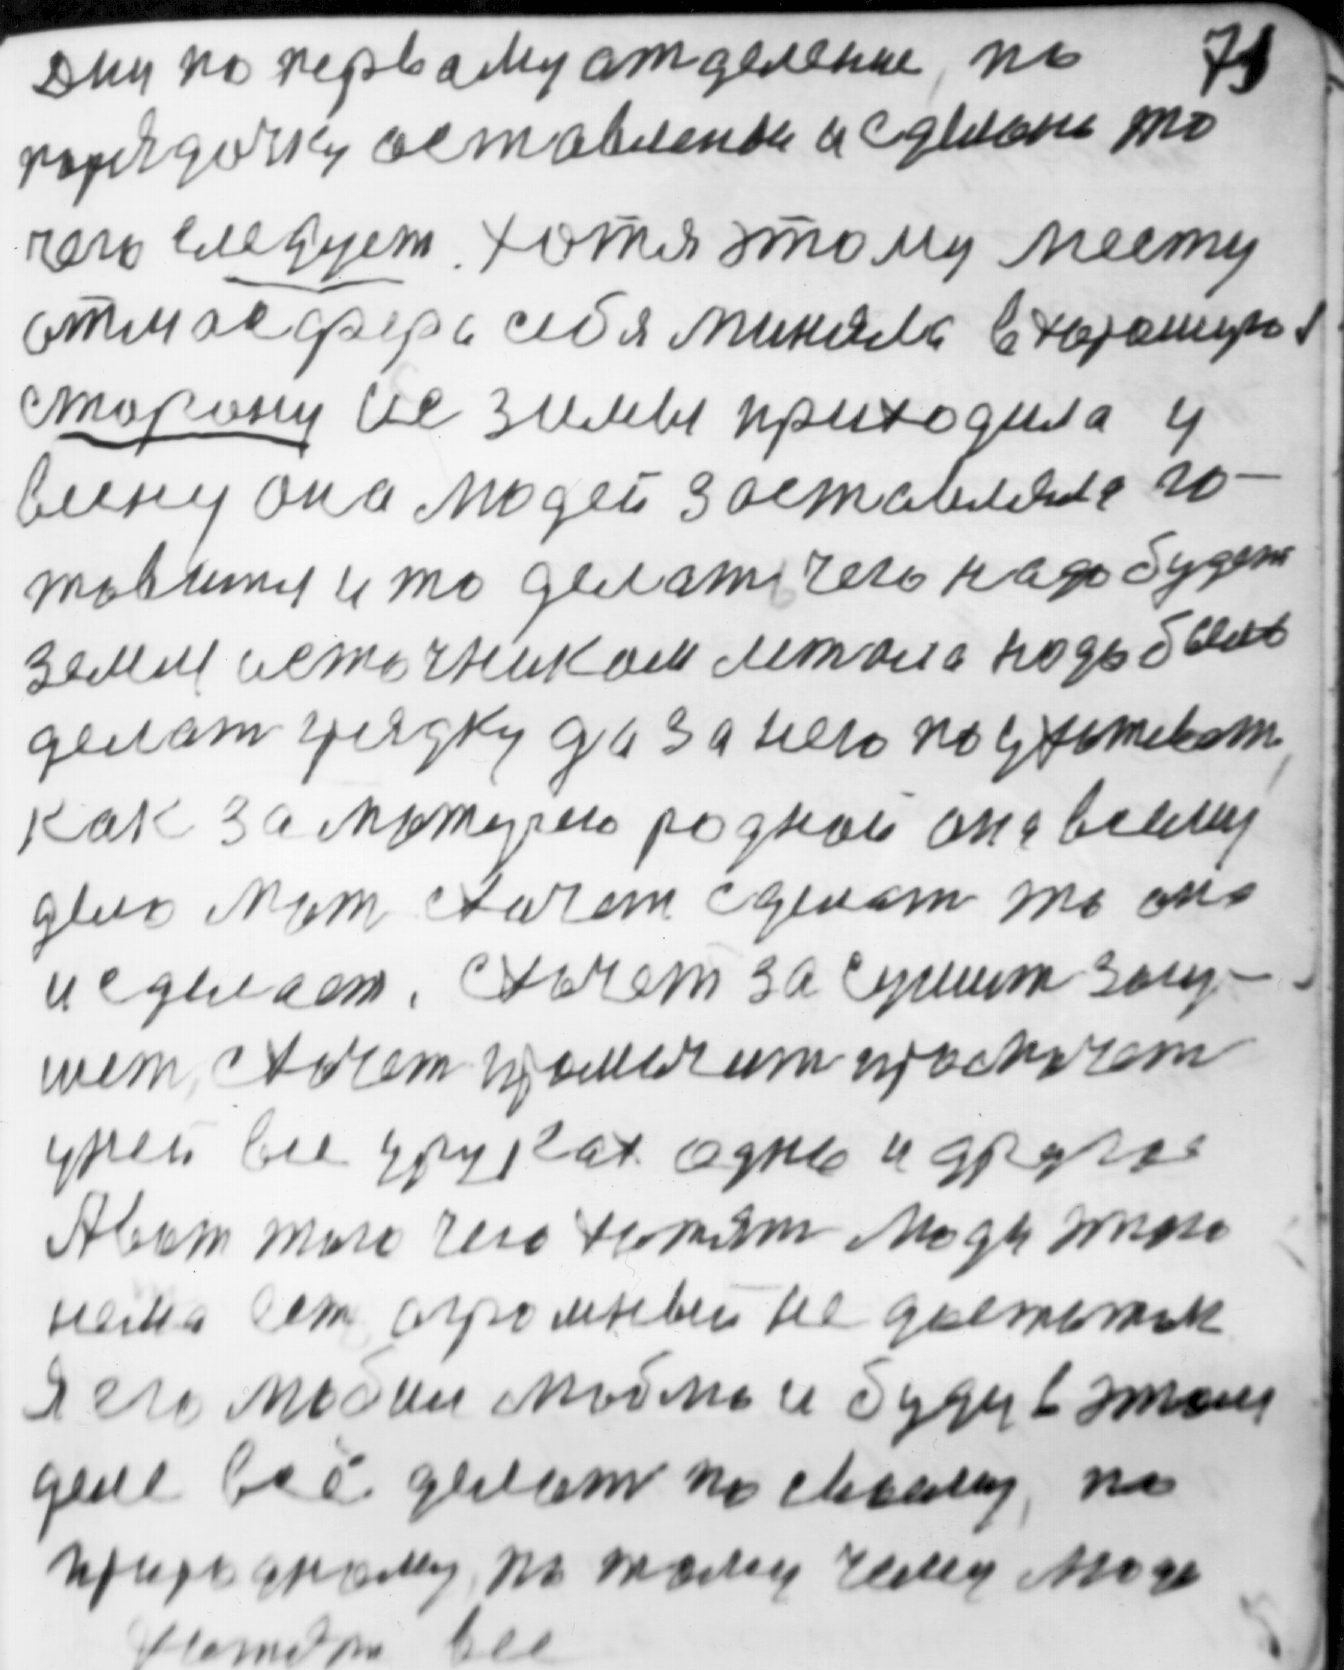 дни по первому отделение, по 71
порядочку оставлены и сделано то
чего следует. хотя этому месту
отмосфера себя миняла в хорошую
сторону ис зимы приходила у
висну она людей заставляла го-
товится и то делать чего надо будет
земля источником летом надо было
делат грядку да за него поухаживат,
как за матерью родной она всему
делу мат схочет сделат то она
и сделает. схочет засушит засу-
шет, схочет промочит промочет
уней все уруках одно и другое
Авот того чего хотят люди этого
нема ест огромный не достаток
Я его любил люблю и буду в этом
деле всё делат по своему, по
природному, по тому чему люди
хотят все